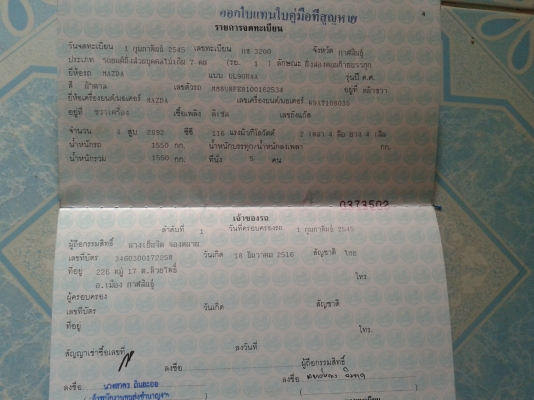 ออกใบแทนใบคู่มือที่สูญหาย
รายการจดทะเบียน
วันจดทะเบียน 1 กุมภาพันธ์ 2545 เลขทะเบียน กข 3200 จังหวัด กาฬสินธุ์
ประเภท รถยนต์นั่งส่วนบุคคลไม่เกิน 7 คน (รย. 1 ) ลักษณะ
ยี่ห้อรถ MAZDA แบบ รุ่นปี ค.ศ.
สี น้ำตาล เลขตัวรถ อยู่ที่
ยี่ห้อเครื่องยนต์/มอเตอร์ MAZDA เลขเครื่องยนต์/มอเตอร์
อยู่ที่ ขวาเครื่อง เชื้อเพลิง ดีเซล เลขถังแก๊ส
จำนวน 4 สูบ 2892 ซีซี 116 แรงม้า/กิโลวัตต์ 2 เพลา 4 ล้อ ยาง 4 เส้น
น้ำหนักรถ 1550 กก. น้ำหนักบรรทุก/น้ำหนักลงเพลา กก.
น้ำหนักรวม 1550 กก. ที่นั่ง 5 คน
0373502
เจ้าของรถ
ลำดับที่ 1 วันที่ครอบครองรถ 1 กุมภาพันธ์ 2545
ผู้ถือกรรมสิทธิ์
เลขที่บัตร 3460300172258 วันเกิด 18 ธันวาคม 2516 สัญชาติ ไทย
ที่อยู่ 226 หมู่ 17 ต.ห้วยโพธิ์ โทร.
อ.เมือง กาฬสินธุ์
ผู้ครอบครอง
เลขที่บัตร วันเกิด สัญชาติ
ที่อยู่ โทร.
สัญญาเช่าซื้อเลขที่ ลงวันที่
ลงชื่อ ผู้ถือกรรมสิทธิ์
ลงชื่อ ลงชื่อ